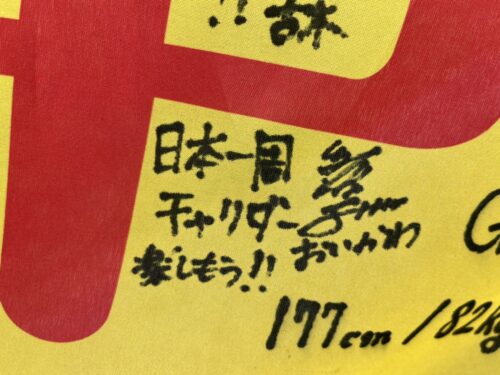 !!
日本一周
チャリダー
おいかわ
楽しもう!!
177cm / 82kg